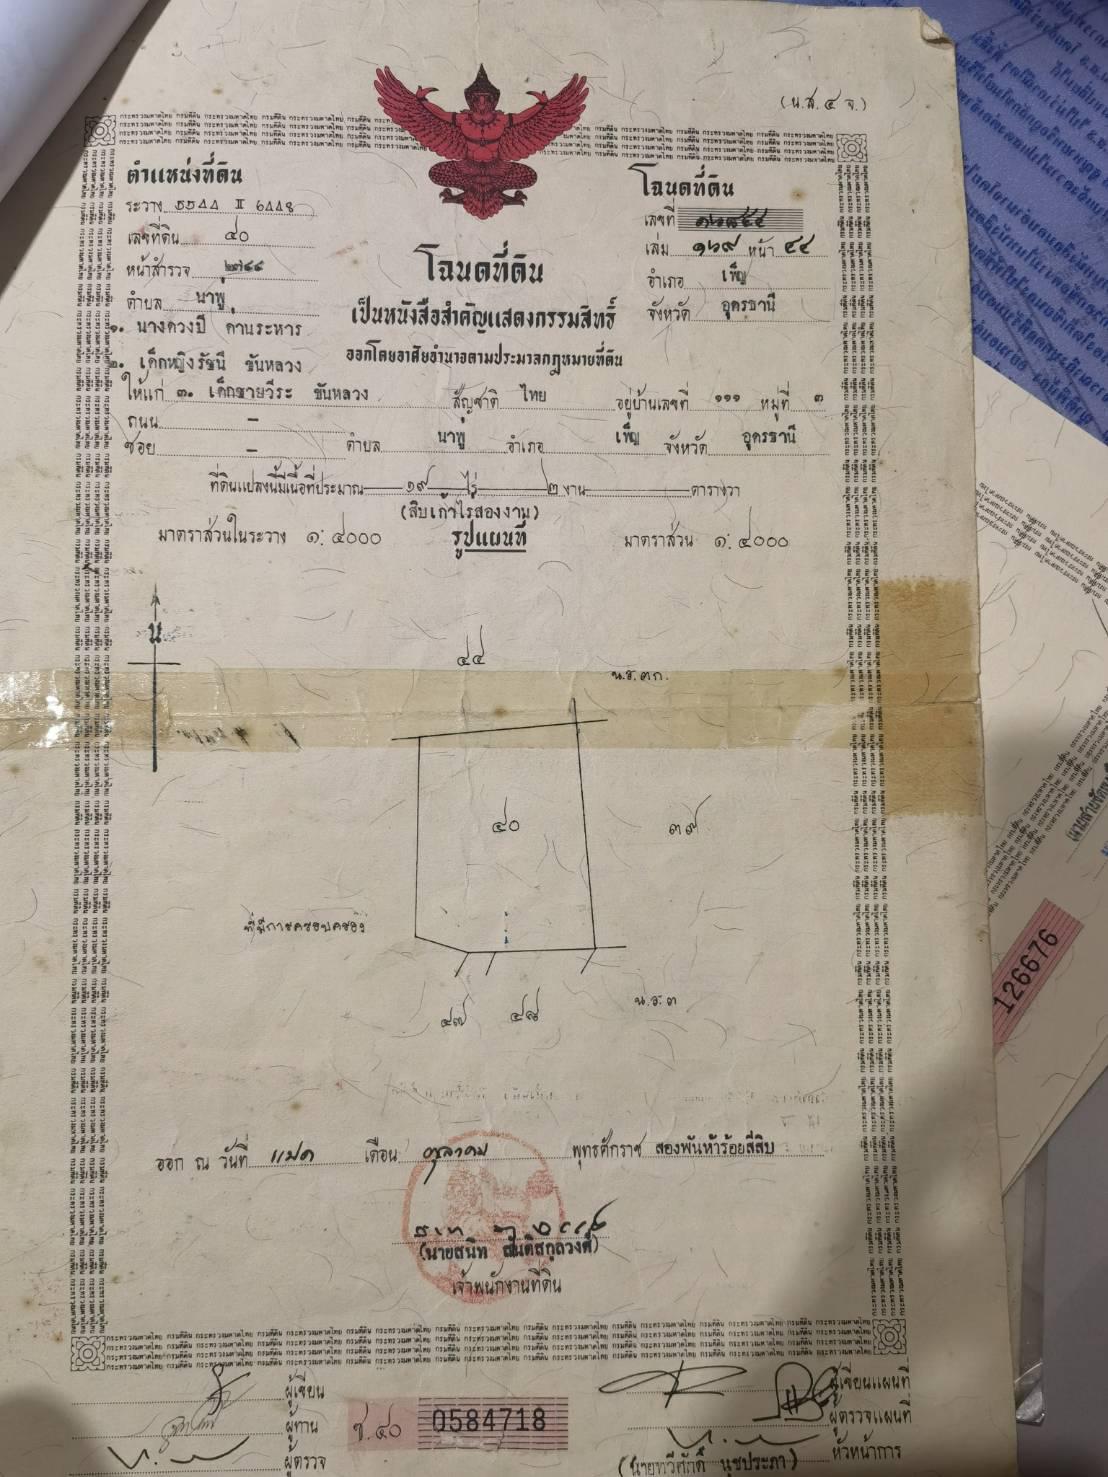 (น.ส.๔ จ.)
ตำแหน่งที่ดิน
ระวาง ๕๕๔๔ II ๖๔๔๘
เลขที่ดิน ๔๐
หน้าสำรวจ
ตำบล นาพู่
โฉนดที่ดิน
เลขที่
เล่ม ๑๖๙ หน้า ๔๔
อำเภอ เพ็ญ
จังหวัด อุดรธานี
โฉนดที่ดิน
เป็นหนังสือสำคัญแสดงกรรมสิทธิ์
ออกโดยอาศัยอำนาจตามประมวลกฎหมายที่ดิน
๑. นางดวงปี ดานระหาร
๒. เด็กหญิงรัชนี ขันหลวง
ให้แก่ ๓. เด็กชายวีระ ขันหลวง สัญชาติ ไทย อยู่บ้านเลขที่ ๑๑๑ หมู่ที่ ๓
ถนน –
ซอย – ตำบล นาพู่ อำเภอ เพ็ญ จังหวัด อุดรธานี
ที่ดินแปลงนี้มีเนื้อที่ประมาณ ๑๙ ไร่ ๒ งาน ตารางวา
(สิบเก้าไร่สองงาน)
มาตราส่วนในระวาง ๑: ๔๐๐๐ รูปแผนที่ มาตราส่วน ๑: ๔๐๐๐
น
๔๔
น.ส.๓ก.
๔๐
๓๗
ที่มีการครอบครอง
น.ส.๓
๔๗ ๔๘
ออก ณ วันที่ แปด เดือน ตุลาคม พุทธศักราช สองพันห้าร้อยสี่สิบ
(นายสนิท สันติสกุลวงศ์)
เจ้าพนักงานที่ดิน
ผู้เขียน
ผู้ทาน
ผู้ตรวจ
ช.๔๐ 0584718
ผู้เขียนแผนที่
ผู้ตรวจแผนที่
หัวหน้าการ
(นายทวีศักดิ์ นุชประภา)
126676